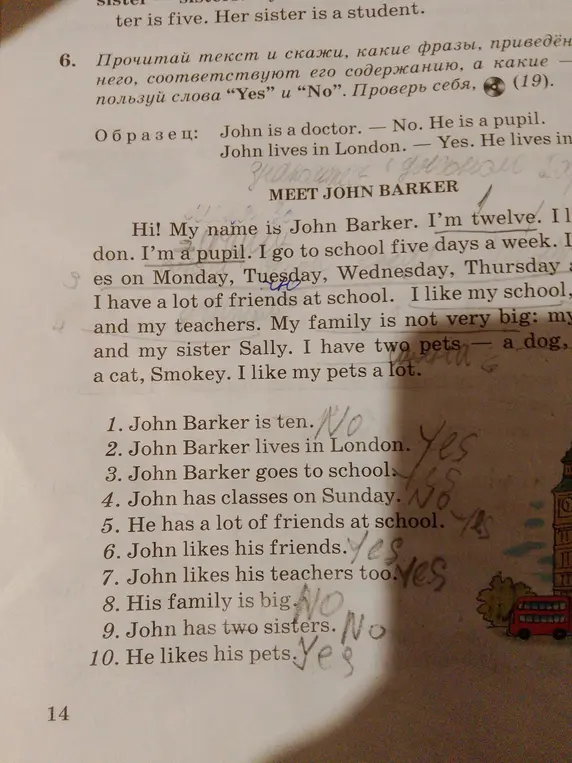 sister
ter is five. Her sister is a student.
6. Прочитай текст и скажи, какие фразы, приведён
него, соответствуют его содержанию, а какие —
пользуй слова “Yes” и “No”. Проверь себя, (19).
Образец: John is a doctor. — No. He is a pupil.
John lives in London. — Yes. He lives in
MEET JOHN BARKER
Hi! My name is John Barker. I’m twelve. I l
don. I’m a pupil. I go to school five days a week. I
es on Monday, Tuesday, Wednesday, Thursday a
I have a lot of friends at school. I like my school,
and my teachers. My family is not very big: my
and my sister Sally. I have two pets — a dog,
a cat, Smokey. I like my pets a lot.
1. John Barker is ten. No
2. John Barker lives in London. Yes
3. John Barker goes to school. Yes
4. John has classes on Sunday. No
5. He has a lot of friends at school. Yes
6. John likes his friends. Yes
7. John likes his teachers too. Yes
8. His family is big. No
9. John has two sisters. No
10. He likes his pets. Yes
14